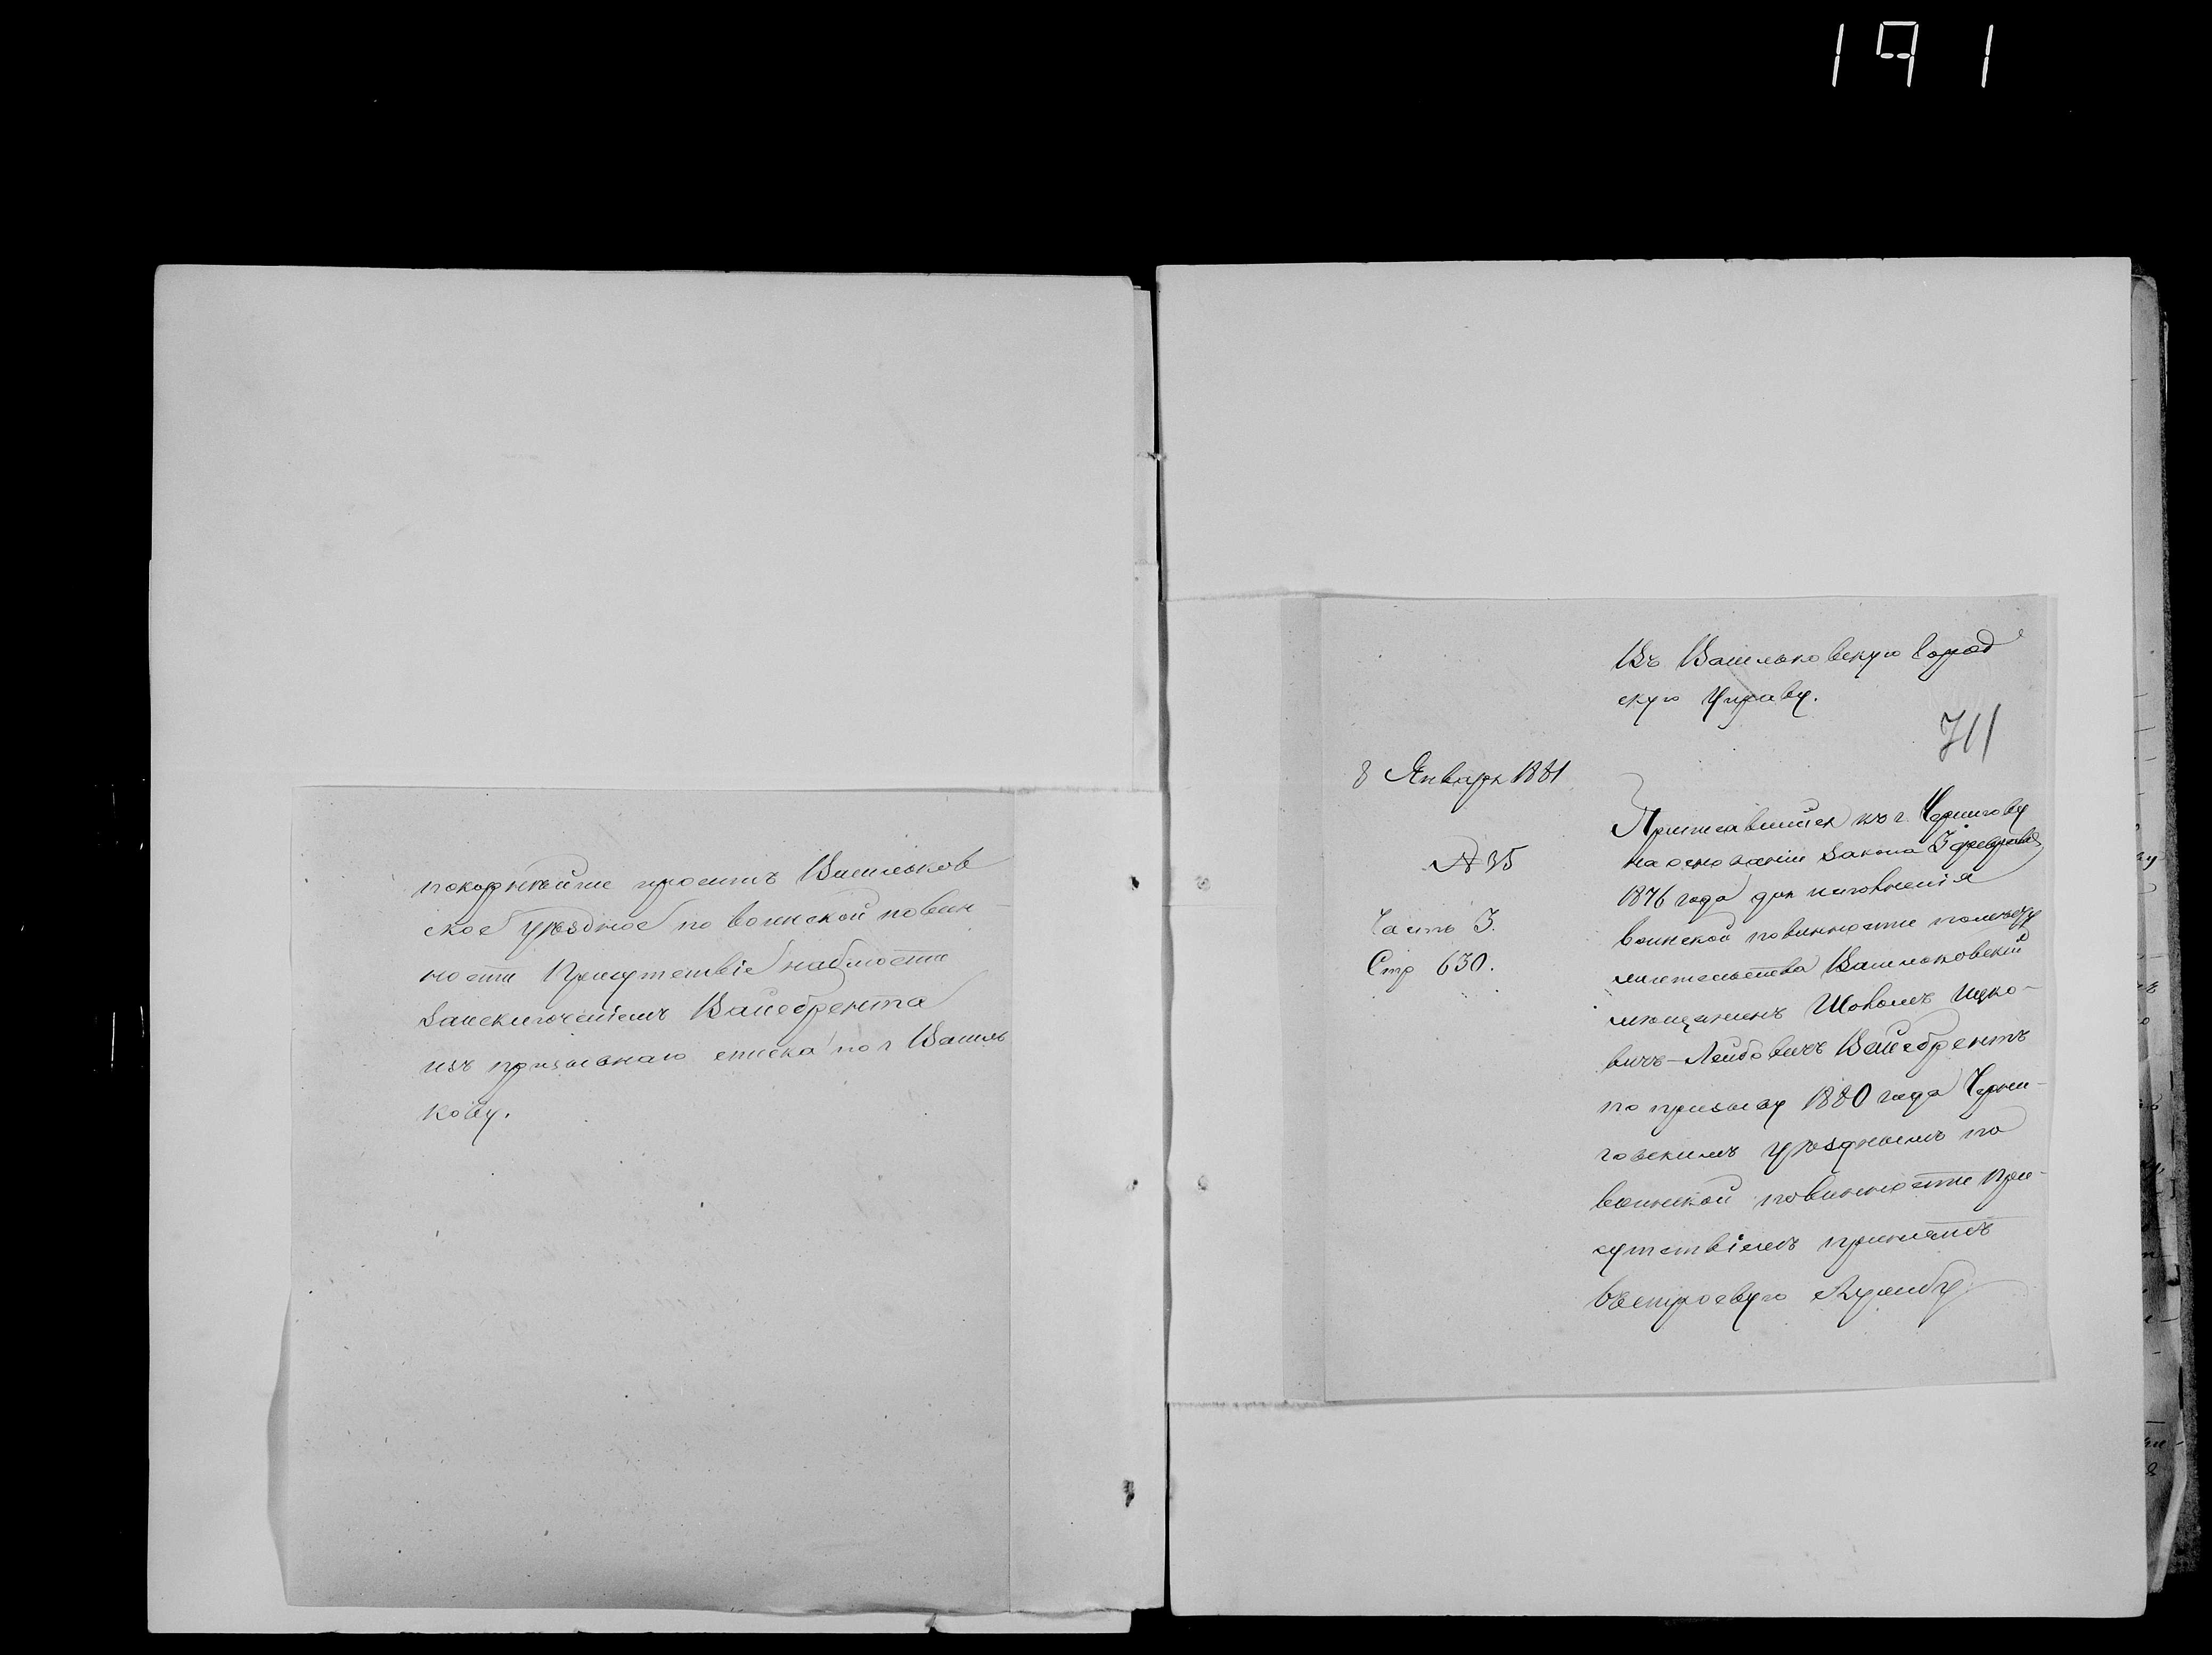 191
покорнѣйше проситъ Васильков
ское уѣздное по воинской повин-
ности Присутствіе наблюсти
за исключеніемъ Вайсбрента
изъ призывнаго списка по г Василь
кову.
Въ Васильковскую Город
скую Управу.
711
8 Января 1881
№ 35
Часть 3.
Стр 630.
Приписавшійся къ г. Чернигову
на основаніи закона 3 февраля
1876 года для исполненія
воинской повинности по мѣсту
жительства Васильковскій
мѣщанинъ Шовомъ Ицко-
вичъ-Лейбовичъ Вайсбрентъ
по призыву 1880 года Черни-
говскимъ уѣзднымъ по
воинской повинности При-
сутствіемъ принятъ
въ строевую службу